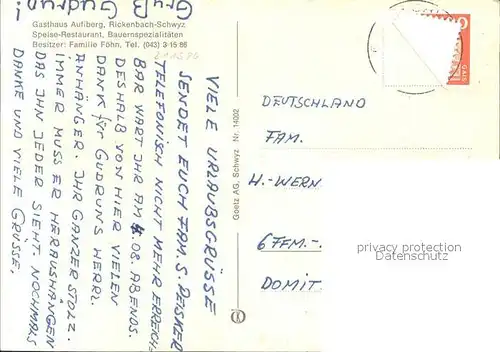 Gasthaus Aufiberg, Rickenbach-Schwyz
Speise-Restaurant, Bauernspezialitäten
Besitzer: Familie Föhn, Tel. (043) 3 15 86
VIELE URLAUBSGRÜSSE
SENDET EUCH FAM. S. PEISKER
TELEFONISCH NICHT MEHR ERREICH-
BAR WART IHR AM 4.08. ABENDS.
DESHALB VON HIER VIELEN
DANK für GUDRUNS HERRL.
ANHÄNGER. IHR GANZER STOLZ.
IMMER MUSS ER HERAUSHÄNGEN
DAS IHN JEDER SIEHT. NOCHMALS
DANKE UND VIELE GRÜSSE.
Gruß Gudrun!
Goetz AG, Schwyz Nr. 14002
DEUTSCHLAND
FAM.
H.-WERN
6 FFM.-.
DOMIT
privacy protection
Datenschutz
GAIS